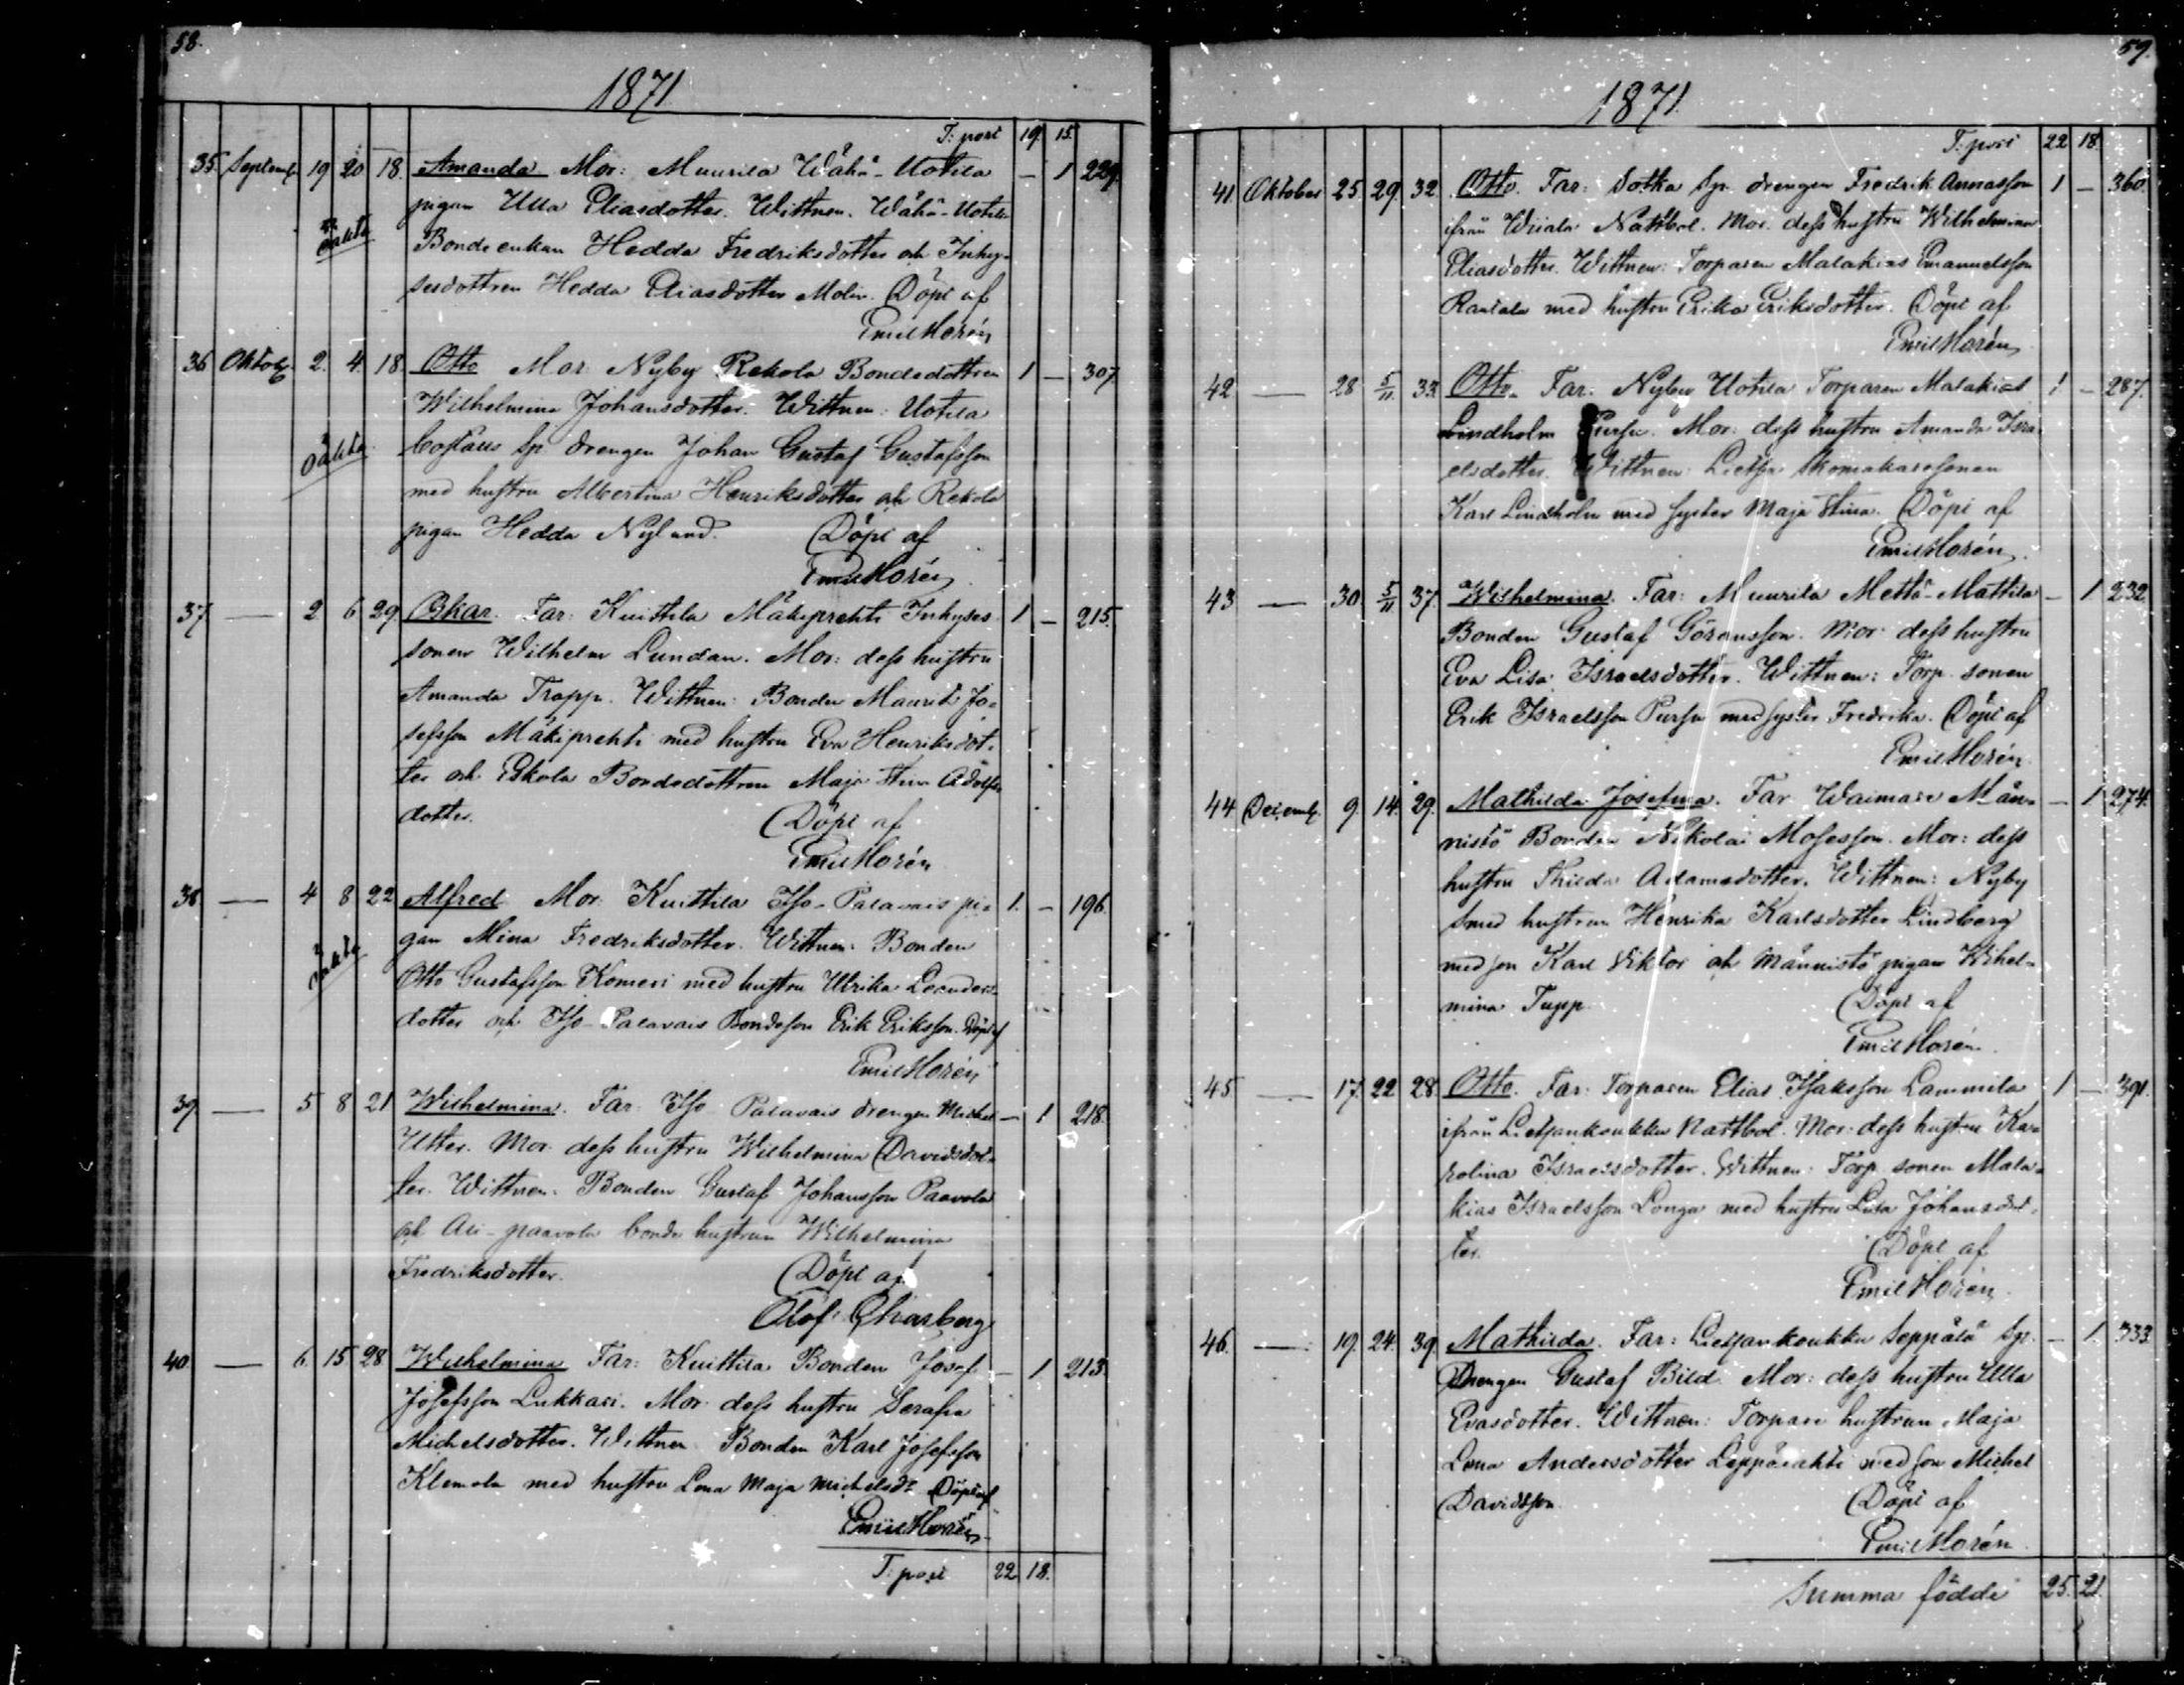 58.
1871
T: port 19. 15.
35. Septemb. 19 20 18. Amanda Mor: Muurila Wähä-Uotila — 1 229.
pigan Ulla Eliasdotter. Wittnen. Wähä-Uotila
oäkta Bondeenkan Hedda Fredriksdotter och Inhy-
sesdottren Hedda Eliasdotter Molin. Döpt af
Emil Horén
36 Oktob. 2. 4. 18. Otto Mor: Nyby Rekola Bondedottren 1 — 307
Wilhelmina Johansdotter. Wittnen: Uotila
oäkta Sp. drengen Johan Gustaf Gustafsson
med hustru Albertina Henriksdotter och Rekola
pigan Hedda Nylund. Döpt af
Emil Horén
37 — 2 6 29 Oskar. Far: Kuittila Mäkiprehti Inhyses- 1 — 215.
sonen Wilhelm Lundan. Mor: dess hustru
Amanda Trapp. Wittnen: Bonden Maurits Jo-
sefsson Mäkiprehti med hustru Eva Henriksdot-
ter och Eskola Bondedottren Maja Stina Adolfs
dotter. Döpt af
Emil Horén
38 — 4 8 22 Alfred Mor: Kuittila Iso-Palavais pi- 1. — 196.
oäkta gan Mina Fredriksdotter. Wittnen: Bonden
Otto Gustafsson Komeri med hustru Ulrika Leanders-
dotter och Iso-Palavais Bondeson Erik Eriksson. Döpt af
Emil Horén
39. — 5 8 21 Wilhelmina. Far: Iso Palavais drengen Michel — 1 218.
Utter. Mor: dess hustru Wilhelmina Davidsdot-
ter. Wittnen: Bonden Gustaf Johansson Paavola
och Ali-paavola bonde hustrun Wilhelmina
Fredriksdotter. Döpt af
Olof
40 — 6. 15 28 Wilhelmina Far: Kuittila Bonden Josef — 1 213.
Josefsson Lukkari. Mor: dess hustru Serafia
Michelsdotter. Wittnen Bonden Karl Josefsson
Klemola med hustru Lena Maja Michelsdr. Döpt af
Emil Horén
T: port 22 18.
59.
1871.
T: port 22 18.
41 Oktober 25 29. 32. Otto. Far: Sotka Sp. drengen Fredrik Annasson 1 — 360.
ifrån Wiiala Nattbol. Mor: dess hustru Wilhelmina
Eliasdotter. Wittnen: Torparen Malakias Emanuelsson
Rantala med hustru Erika Eriksdotter. Döpt af
Emil Horén
42 — 28 5/11. 33. Otto. Far: Nyby Uotila Torparen Malakias 1 — 287.
Lindholm Pursu. Mor: dess hustru Amanda Isra-
elsdotter. Wittnen: Skomakaresonen
Karl Lindholm med syster Maja Stina. Döpt af
Emil Horén.
43 — 30. 5/11 37. Wilhelmina. Far: Muurila Mettä-Mattila — 1 232.
Bonden Gustaf Göransson. Mor: dess hustru
Eva Lisa Israelsdotter. Wittnen: Torp. sonen
Erik Israelsson Pursu med syster Fredrika. Döpt af
Emil Horén.
44. Decemb. 9. 14. 29. Mathilda Josefina. Far: Waimare Män- — 1 274.
nistö Bonden Nikolai Mosesson. Mor: dess
hustru Thilda Adamsdotter. Wittnen: Nyby
smed hustrun Henrika Karlsdotter Lindberg
med son Karl Viktor och Männistö pigan Wihel-
mina Tupp. Döpt af
Emil Horén.
45 — 17. 22 28. Otto. Far: Torparen Elias Isaksson Lammila 1 — 391.
ifrån Lietsankoukku Nattbol. Mor: dess hustru Ka-
rolina Israelsdotter. Wittnen: Torp. sonen Mala-
kias Israelsson Longa med hustru Lisa Johansdot-
ter. Döpt af
Emil Horén.
46. — 19. 24. 39. Mathilda. Far: Lietsankoukku Seppälä Sp. — 1 333.
Drengen Gustaf Bild. Mor: dess hustru Ulla
Evasdotter. Wittnen: Torpare hustrun Maja
Lena Andersdotter Leppälahti med son Michel
Davidsson. Döpt af
Emil Horén.
Summa födde 25. 21.